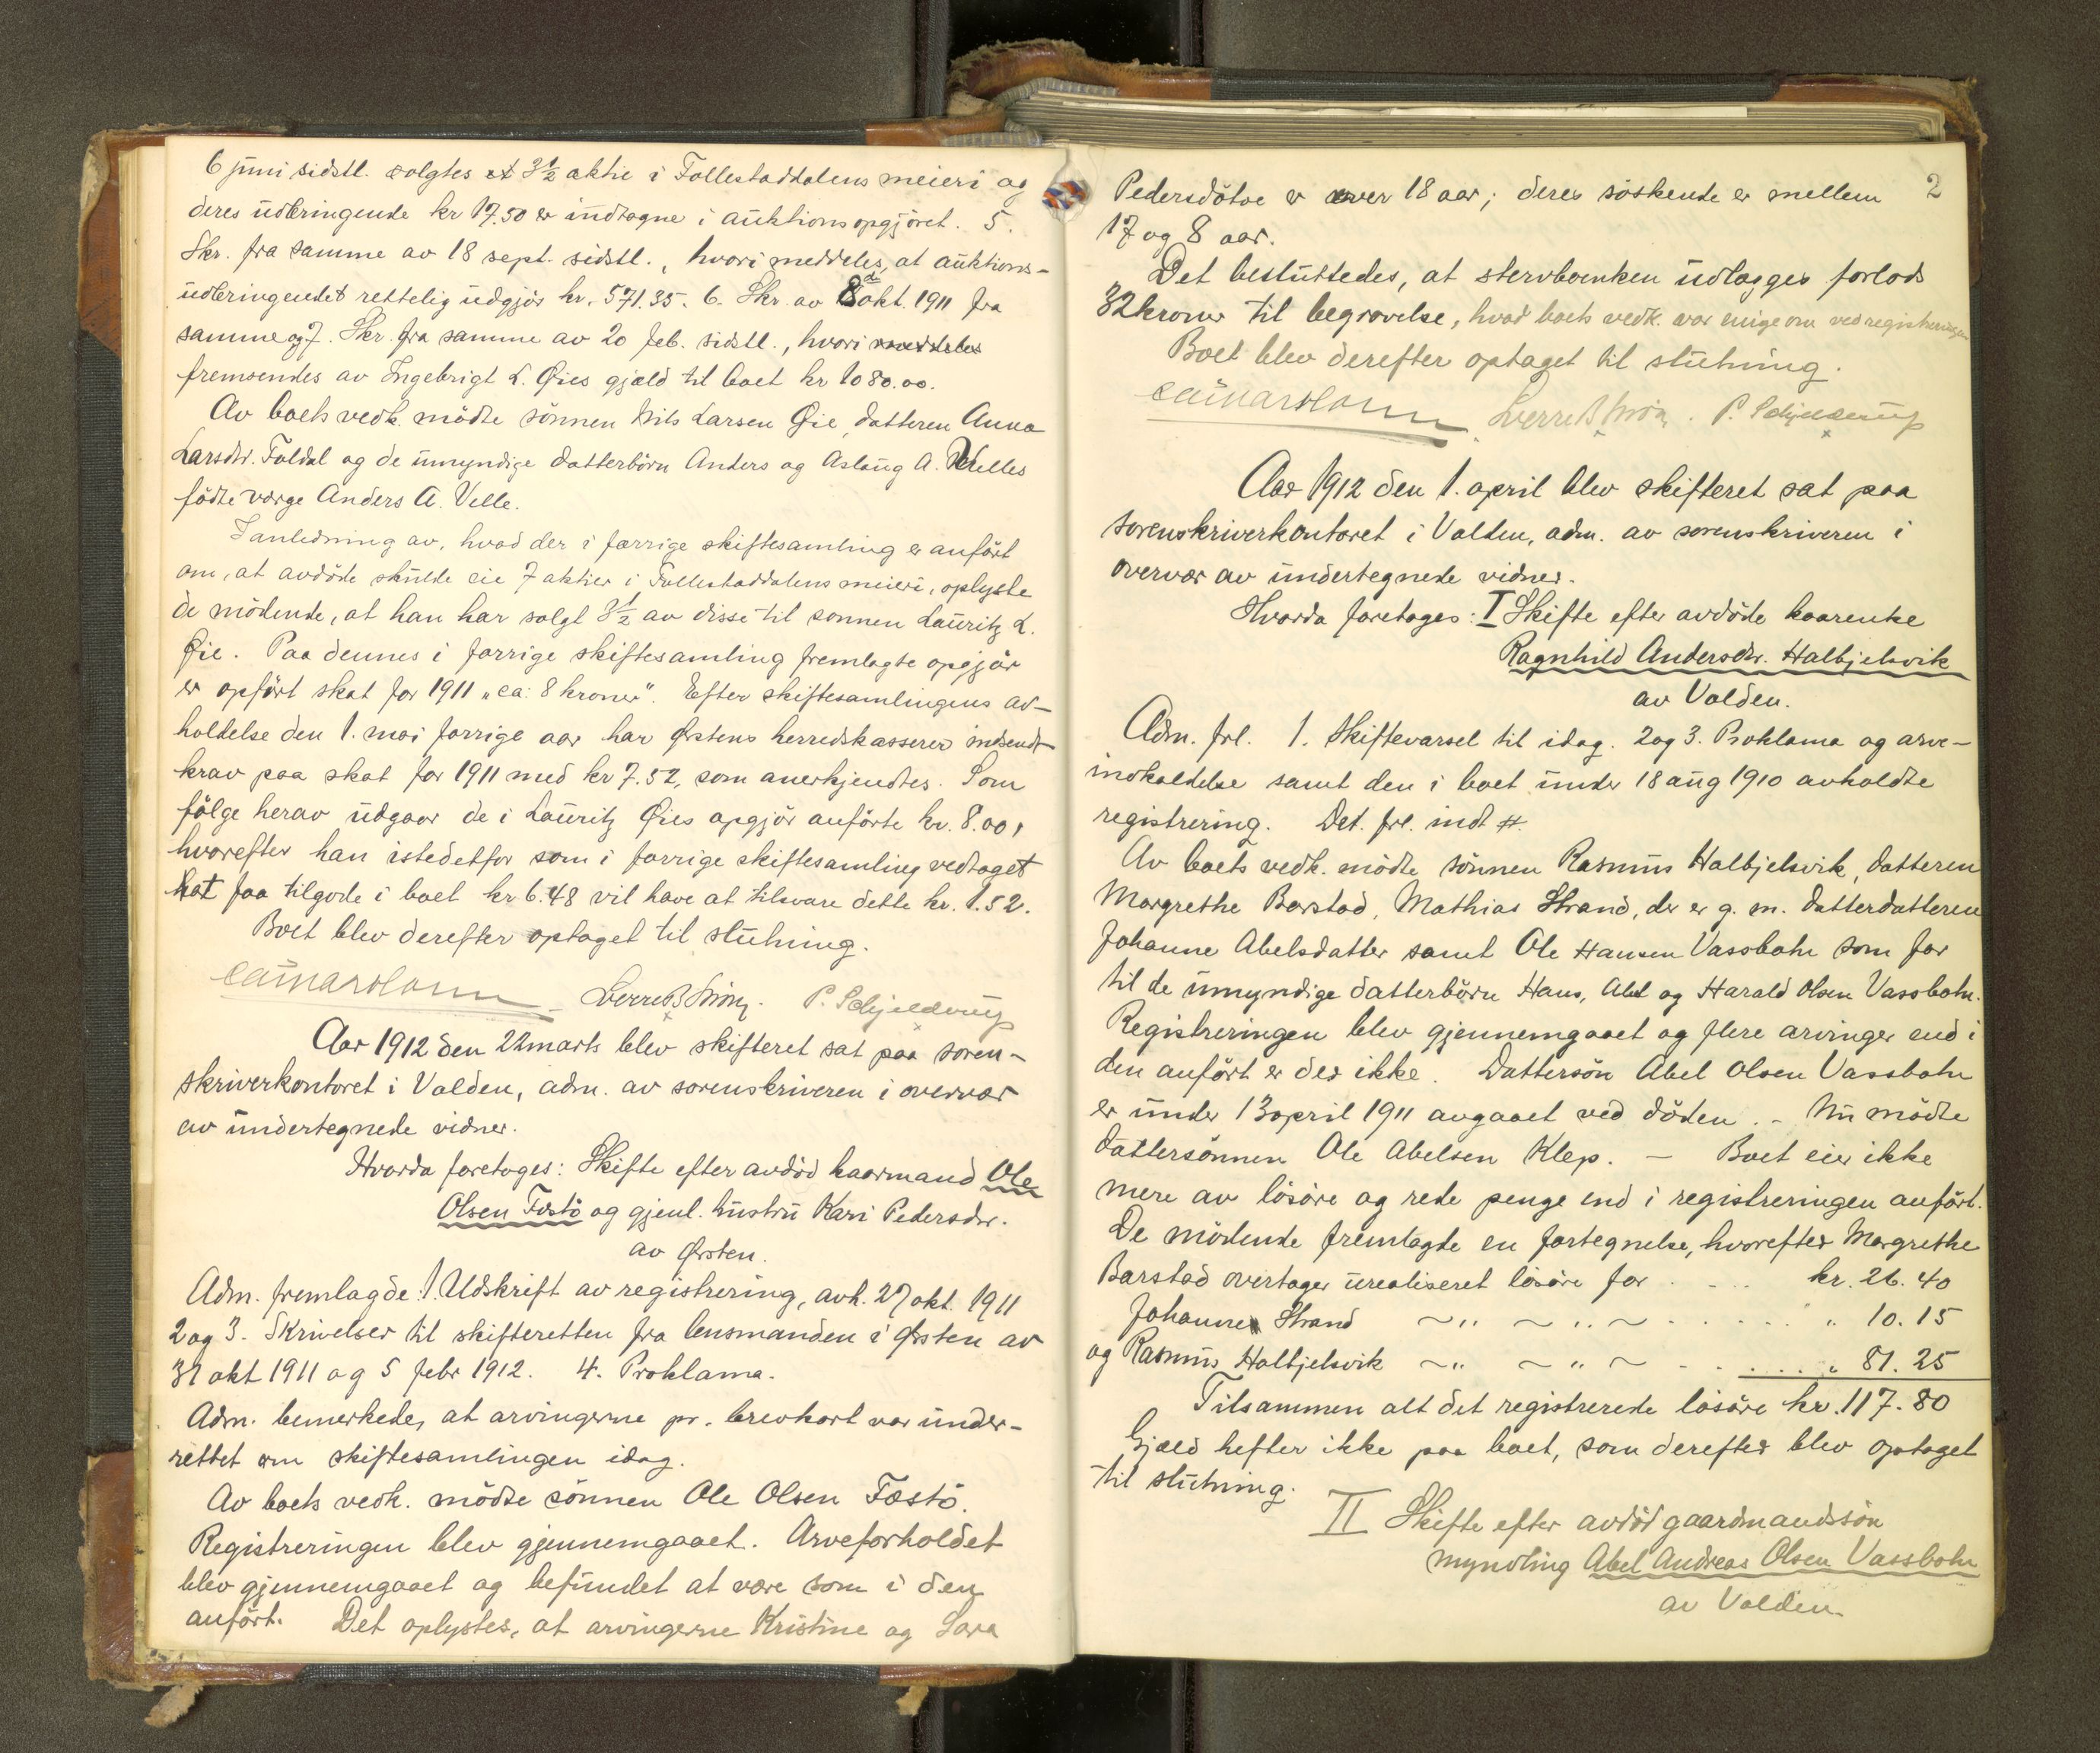 6 juni sidstl. solgtes et 3½ aktie i Follestaddalens meieri og
deres udbringende kr 17.50 er indtagne i auktionsopgjöret. 5.
Skr. fra samme av 18 sept. sidstl., hvori meddeles, at auktions-
udbringendet rettelig udgjör kr. 571.35. 6. Skr. av 8 okt. 1911 fra
samme og 7. Skr. fra samme av 20 feb. sidstl., hvori meddeles
fremsendes av Ingebrigt L. Øies gjæld til boet kr 1080.00.
Av boets vedk. mödte sönnen Nils Larsen Øie, datteren Anna
Larsdtr. Foldal og de umyndige datterbörn Anders og Aslaug A. Velles
födte værge Anders A. Velle.
I anledning av, hvad der i forrige skiftesamling er anfört
om, at avdöde skulde eie 7 aktier i Follestaddalens meieri, oplyste
de mödende, at han har solgt 3½ av disse til sønnen Lauritz L.
Øie. Paa dennes i forrige skiftesamling fremlagte opgjör
er opfört skat for 1911 "ca: 8 kroner". Efter skiftesamlingens av-
holdelse den 1. mai forrige aar har Ørstens herredskasserer indsendt
krav paa skat for 1911 med kr 7.52, som anerkjendtes. Som
fölge herav udgaar de i Lauritz Øies opgjör anförte kr. 8.00,
hvorefter han istedetfor som i forrige skiftesamling vedtaget
hat faa tilgode i boet kr 6.48 vil have at tilsvare dette kr. 1.52.
Boet blev derefter optaget til slutning.
P. Schjelderup
Aar 1912 den 22 marts blev skifteret sat paa soren-
skriverkontoret i Volden, adm. av sorenskriveren i overvær
av undertegnede vidner.
Hvorda foretoges: Skifte efter avdöd kaarmand Ole
Olsen Fostö og gjenl. hustru Kari Pedersdtr.
av Ørsten.
Adm. fremlagde: 1. Udskrift av registrering, avh. 27 okt. 1911
2 og 3. Skrivelser til skifteretten fra lensmanden i Ørsten av
31 okt 1911 og 5 febr 1912. 4. Proklama.
Adm. bemerkede, at arvingerne pr. brevkort var under-
rettet om skiftesamlingen idag.
Av boets vedk. mödte sönnen Ole Olsen Fostö.
Registreringen blev gjennemgaaet. Arveforholdet
blev gjennemgaaet og befundet at være som i den
anfört. Det oplystes, at arvingerne Kristine og Sara
2
Pedersdötre er over 18 aar; deres söskende er mellem
17 og 8 aar.
Det besluttedes, at stervboenken udlægges forlods
32 kroner til begravelse, hvad boets vedk. var enige om ved registreringen
Boet blev derefter optaget til slutning.
P. Schjelderup
Aar 1912 den 1. april blev skifteret sat paa
sorenskriverkontoret i Volden, adm. av sorenskriveren i
overvær av undertegnede vidner.
Hvorda foretoges: I Skifte efter avdöde kaarenke
Ragnhild Andersdtr. Halbjelsvik
av Volden.
Adm. frl. 1. Skiftevarsel til idag. 2 og 3. Proklama og arve-
indkaldelse samt den i boet under 18 aug 1910 avholdte
registrering. Det. frl. indt #.
Av boets vedk. mödte sönnen Rasmus Halbjelsvik, datteren
Margrethe Barstad, Mathias Strand, der er g. m. datterdatteren
Johanne Abelsdatter samt Ole Hansen Vassbotn som far
til de umyndige datterbörn Hans, Abel og Harald Olsen Vassbotn.
Registreringen blev gjennemgaaet og flere arvinger end i
den anfört er der ikke. Dattersön Abel Olsen Vassbotn
er under 13 april 1911 avgaaet ved döden. - Nu mödte
dattersönnen Ole Abelsen Klep. - Boet eier ikke
mere av lösöre og rede penge end i registreringen anfört.
De mödende fremlagde en fortegnelse, hvorefter Margrethe
Barstad overtager urealiseret lösöre for . . . kr. 26.40
Johanne Strand ~ " ~ " ~ . . . . . " 10.15
og Rasmus Halbjelsvik ~ " ~ " ~ . . . . . " 81.25
Tilsammen alt det registrerede lösöre kr. 117.80
Gjæld hefter ikke paa boet, som derefter blev optaget
til slutning.
II Skifte efter avdöd gaardmandssön
myndling Abel Andreas Olsen Vassbotn
av Volden.